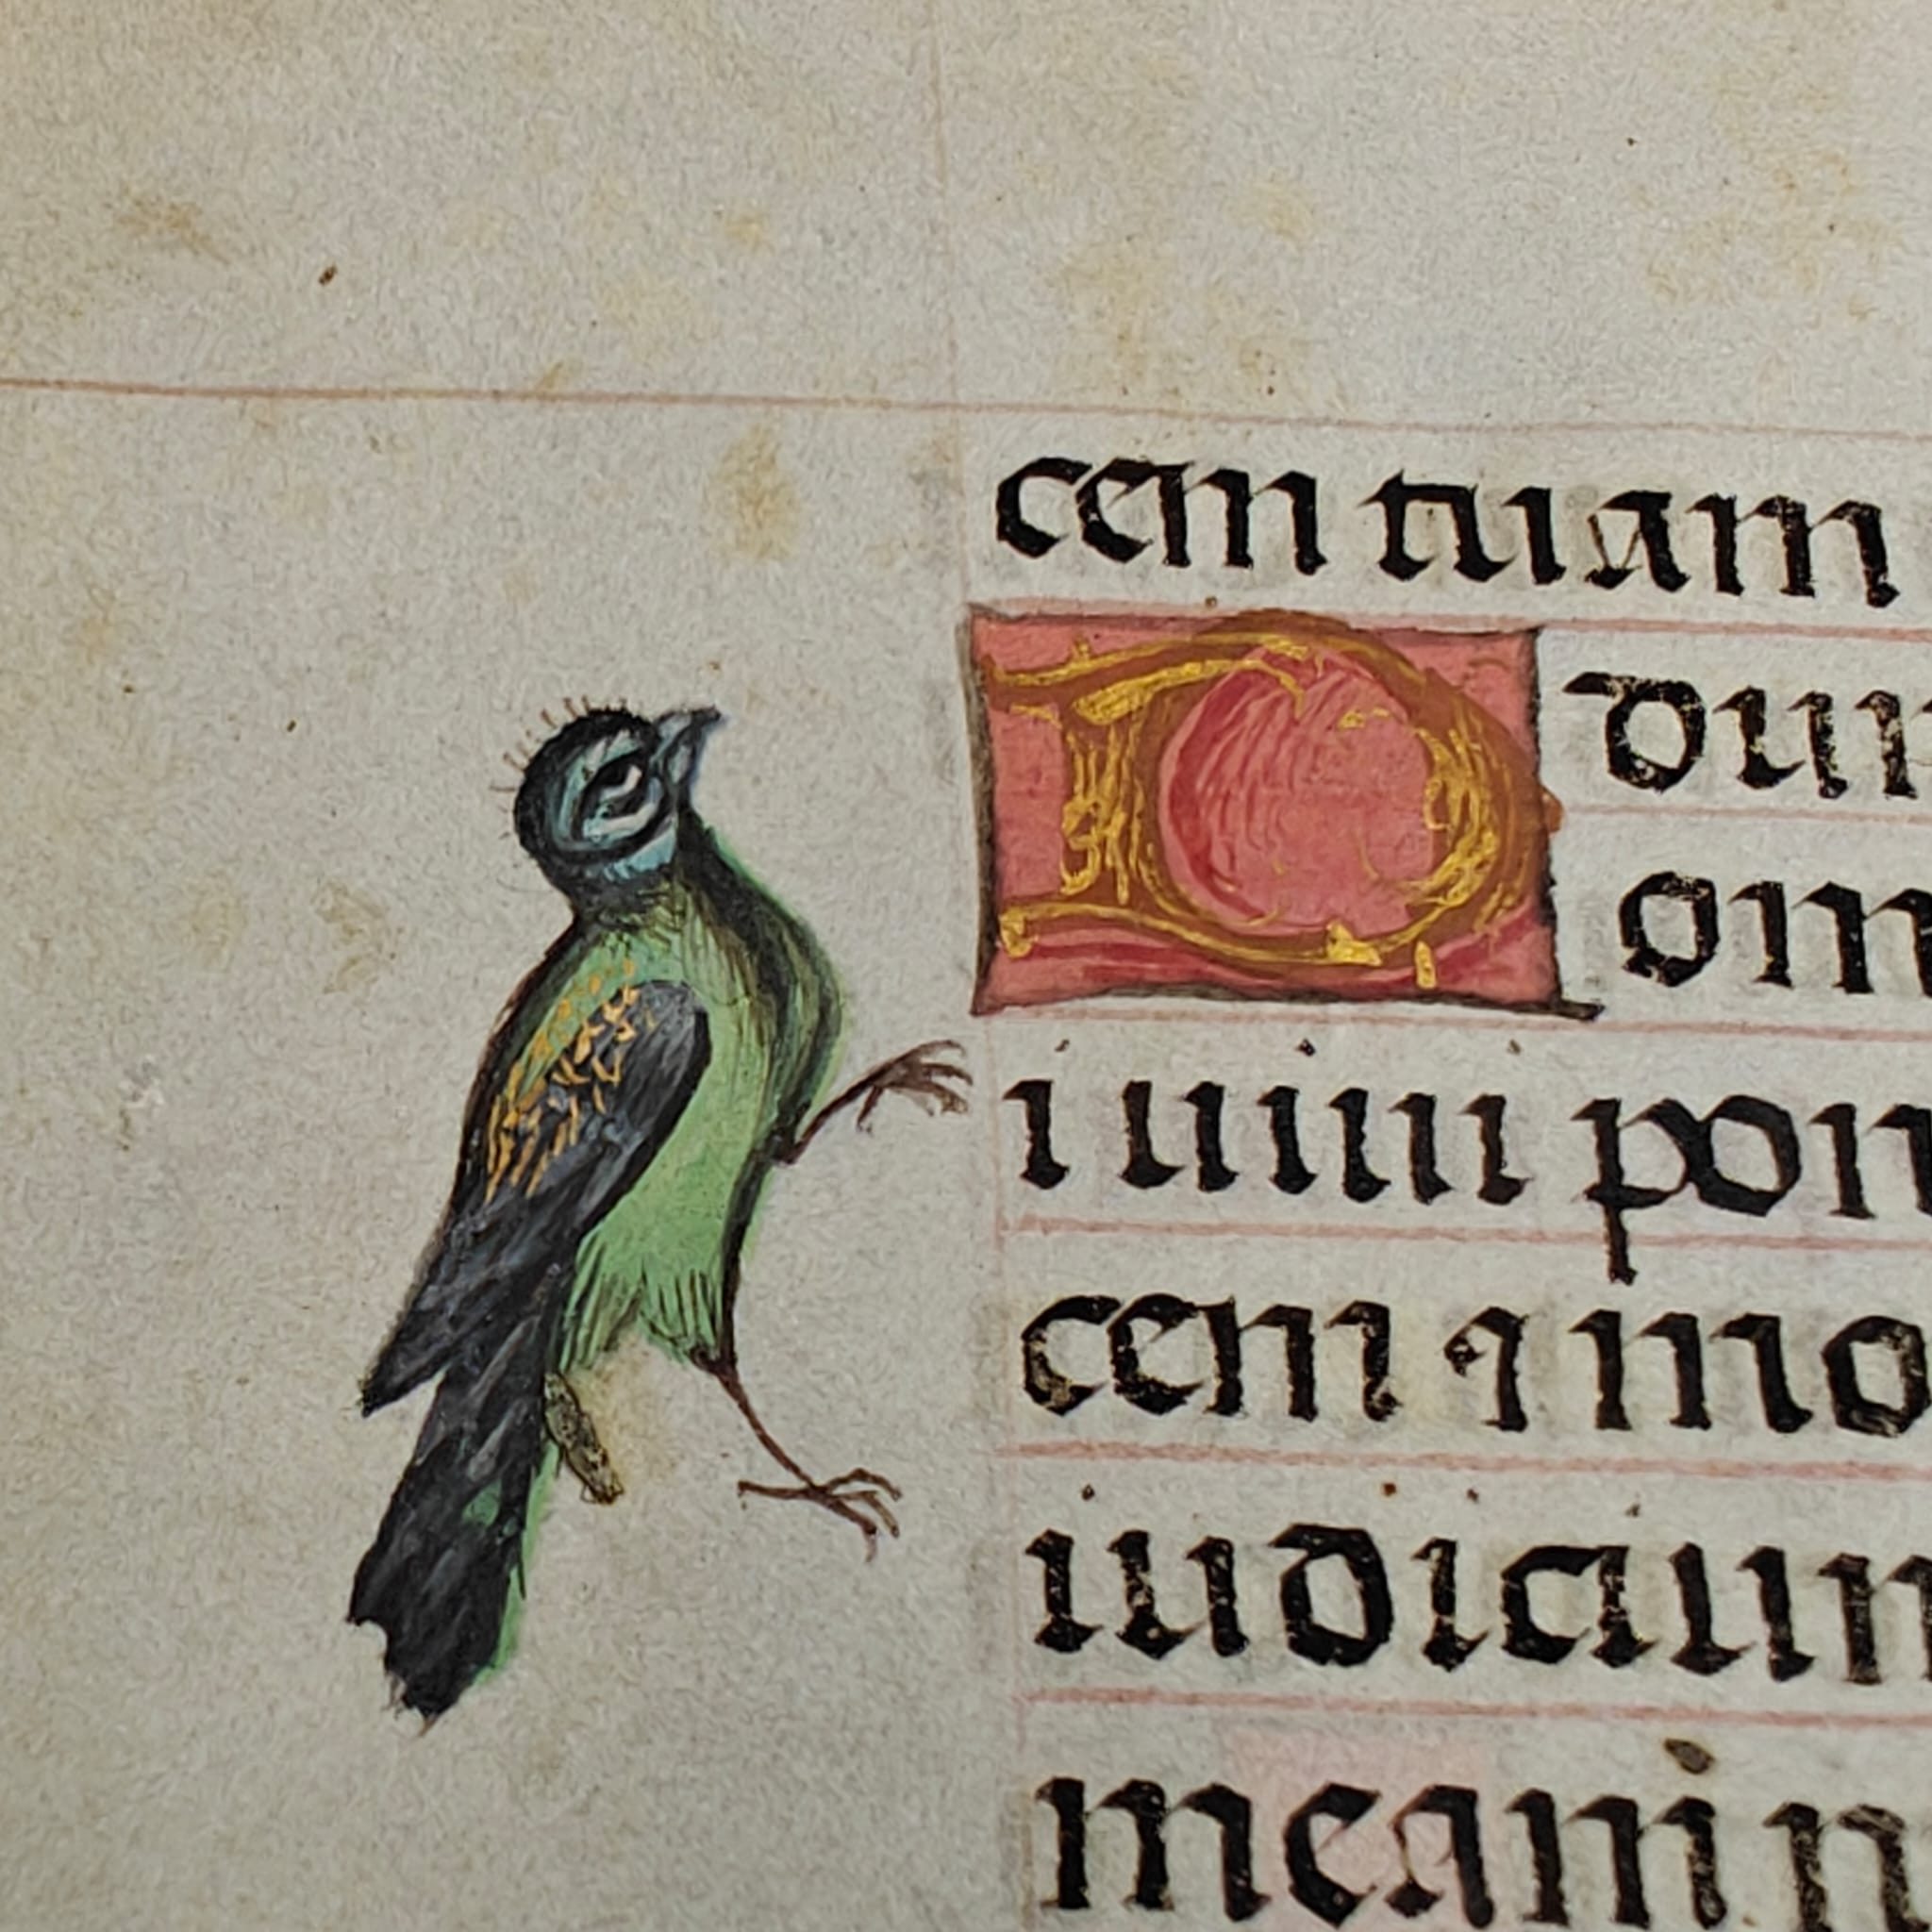 cem tuam
D dui
om
i uiui pon
cem ⁊ mo
iudicium
meam n